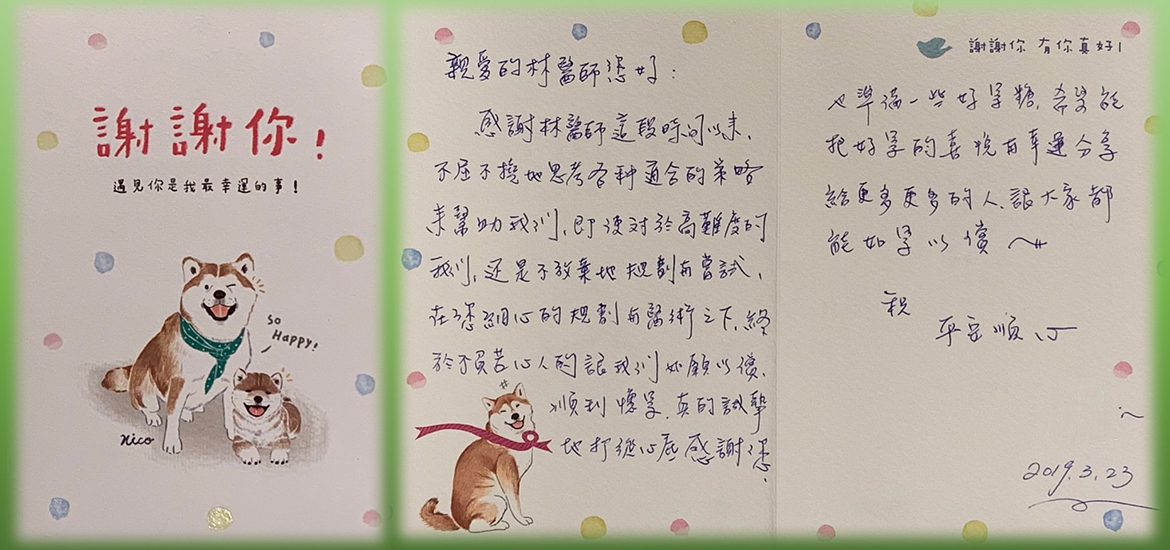 謝謝你!
遇見你是我最幸運的事!
So
Happy!
Nico
親愛的林醫師您好:
感謝林醫師這段時間以來,
不屈不撓地思考各種適合的策略
來幫助我们,即便对於高難度的
我们,还是不放棄地規劃与嘗試,
在您細心的規劃与醫術之下,終
於不負苦心人的讓我们如願以償,
順利懷孕,真的誠摯
地打從心底感謝您.
謝謝你 有你真好!
也準備一些好孕糖,希望能
把好孕的喜悅与幸運分享
給更多更多的人,讓大家都
能如孕以償~
祝
平安順心
2019.3.23